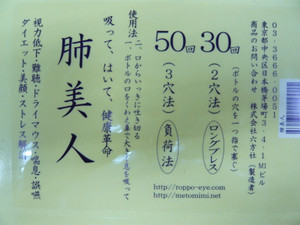 03-3666-0051
東京都中央区日本橋茅場町3-4-1MIビル
商品のお問い合わせ 株式会社六方社(製造者)
(ボトルの穴を一つ指で塞ぐ)
30回(2穴法)ロングブレス
50回(3穴法)負荷法
使用法 一、口からいっきに吐き切る
二、ボトルの口をくわえ鼻で大きく息を吸って
吸って、はいて、健康革命
肺美人
視力低下・難聴・ドライマウス・喘息・誤嚥
ダイエット・美顔・ストレス解消
http://roppo-eye.com
http://metomimi.net